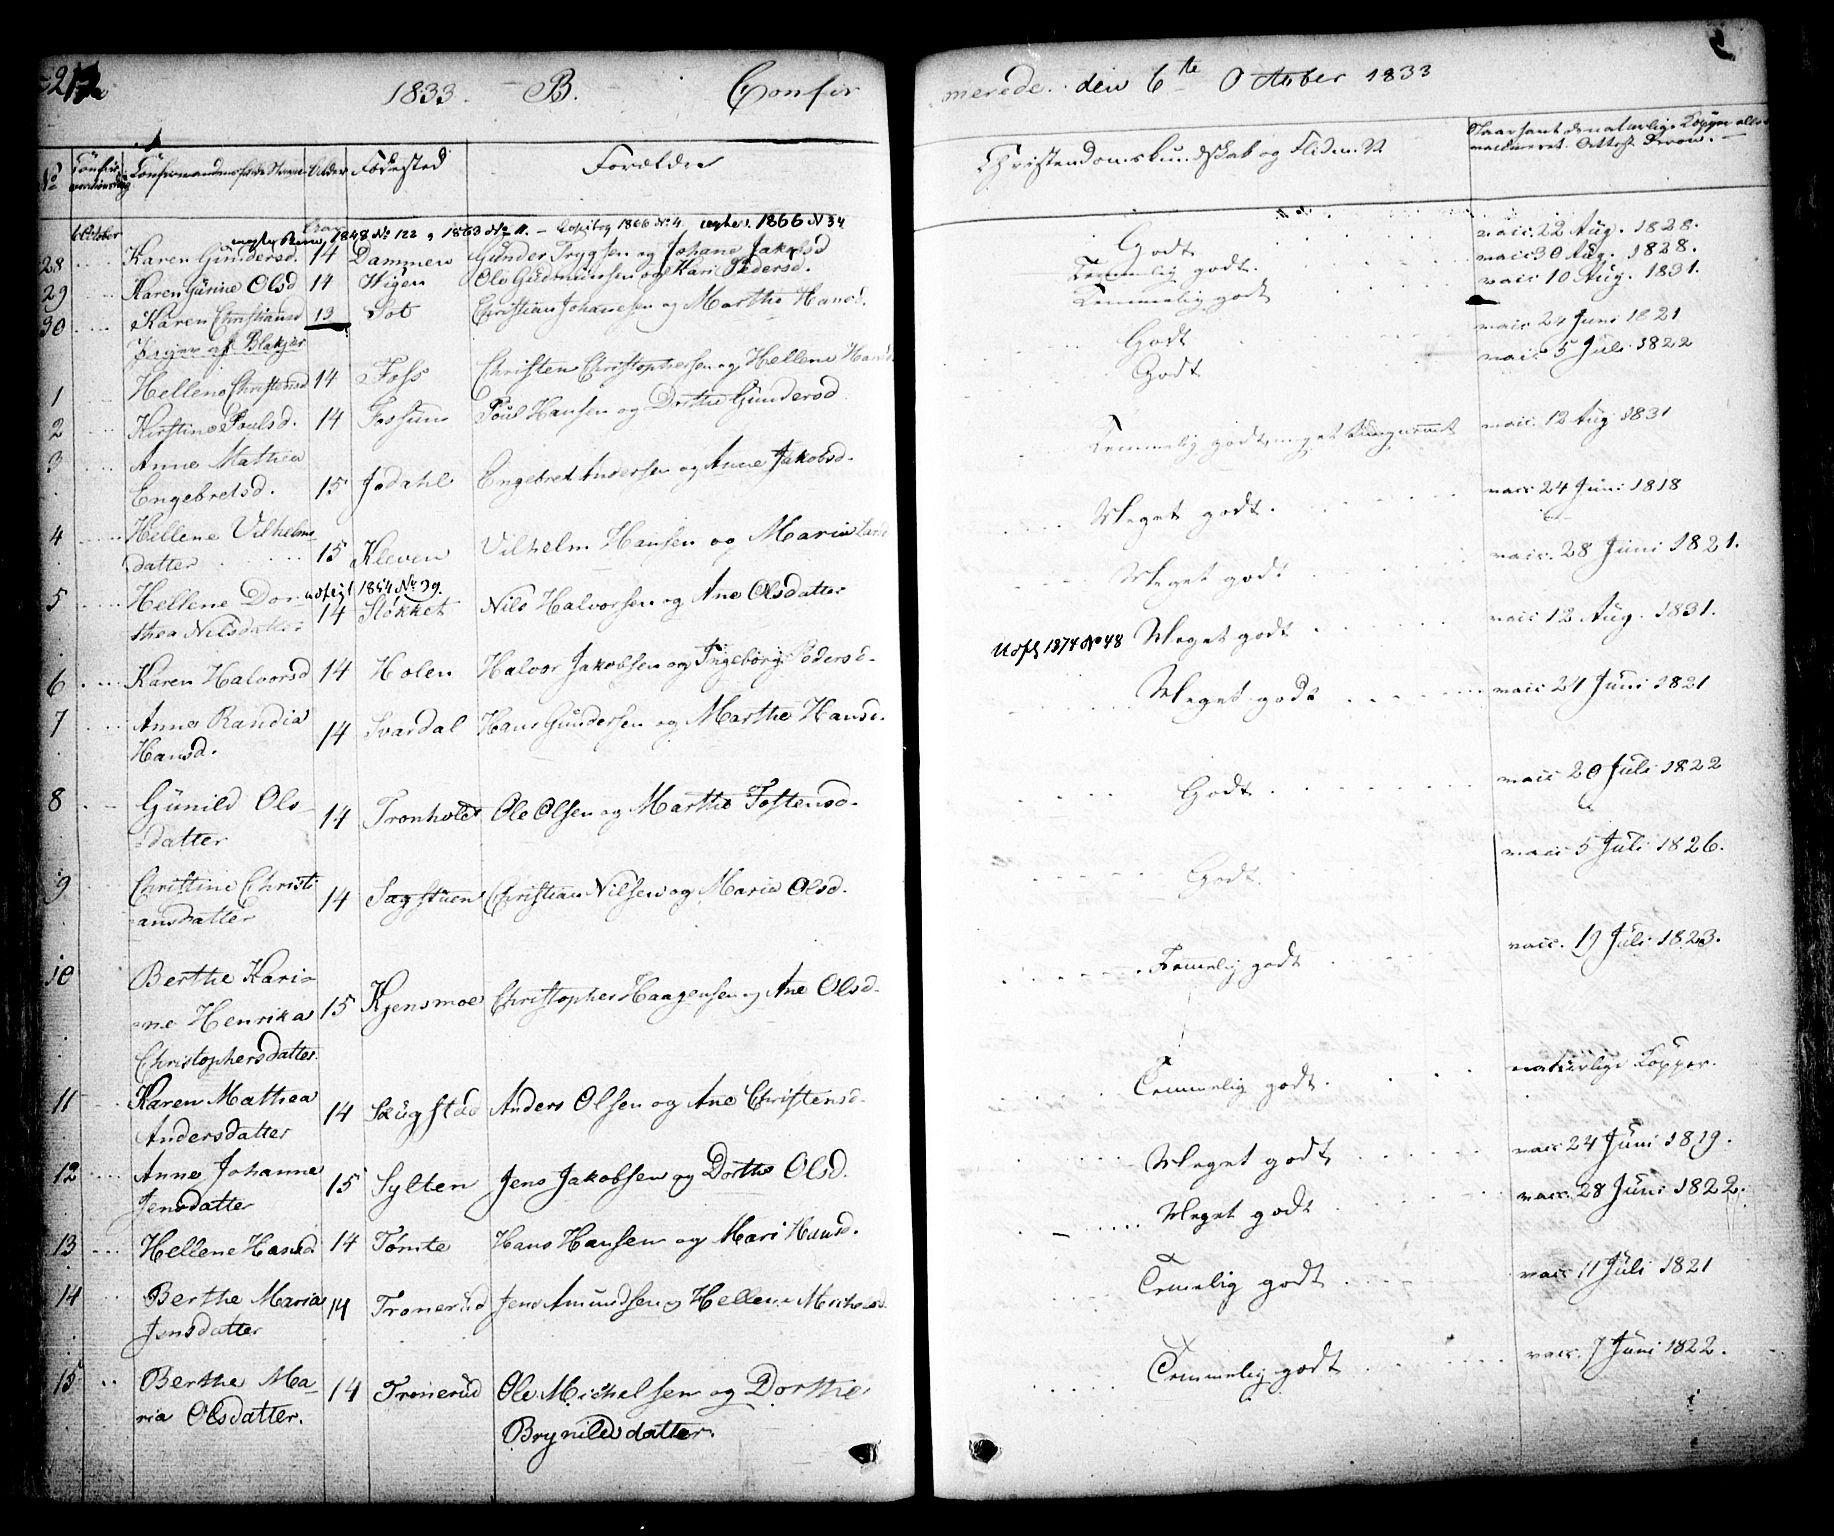 1833. B. Confir
merede den 6te October 1833
No Confirmationsdag Confirmandens fulde Navn Alder Fødested Forældre
Christendomskundskab og Flid m. v.
6 October
1848 No 122 1863 No 11. 1866 No 4 1866 N 34
28 Karen Gundersd. 14 Dammen Gunder Trygsen og Johane Jakobsd Godt vacc. 22 Aug. 1828.
29 Karen Gurine Olsd 14 Higen Ole Gudmunsen og Kari Pedersd. Temmelig godt. vacc. 30 Aug. 1828.
30 Karen Christiansd 13 Sot Christian Johannesen og Marthe Hansd. Temmelig godt vacc 10 Aug. 1831.
Piger af Blakjer
1 Hellene Christensd 14 Foss Christen Christophersen og Hellene Hansd Godt vacc. 24 Juni 1821
2 Kirstine Poulsd. 14 Fossum Poul Hansen og Dorthe Gundersd. Godt vacc 5 Juli 1822
3 Anne Mathea
Engebretsd. 15 Jødahl Engebret Andersen og Anne Jakobsd. Temmelig godt, meget tungnemt vacc. 12 Aug 1831
4 Hellene Vilhelms
datter 15 Kleven Vilhelm Hansen og Maria Lars Meget godt. vacc 24 Juni 1818
5 Hellene Dor- udflyt 1854 No 39.
thea Nilsdatter 14 Støkket Nils Halvorsen og Ane Olsdatter Meget godt vacc. 28 Juni 1821.
6 Karen Halvorsd 14 Holen Halvor Jakobsen og Ingeborg Pedersd. Udfl 1874 No 48 Meget godt vacc 12 Aug. 1831.
7 Anne Randia
Hansd. 14 Svardal Hans Gundersen og Marthe Hansd. Meget godt vacc 21 Juni 1821
8 Gunild Ols-
datter 14 Tronholdt Ole Olsen og Marthe Tostensd. Godt vacc 20 Juli 1822
9 Christine Christi
ansdatter 14 Sagstuen Christian Nilsen og Maria Olsd. Godt vacc 5 Juli 1826.
10 Berthe Kari-
ne Henrika 15 Kjensmoe Christopher Haagensen og Ane Olsd. Temelig godt vacc. 19 Juli 1823.
Christophersdatter.
11 Karen Mathea
Andersdatter 14 Skugstad Anders Olsen og Ane Christensd. Temmelig godt. naturlige Kopper.
12 Anne Johanne
Jensdatter 15 Sylten Jens Jakobsen og Dorthe Olsd. Meget godt vacc 24 Juni 1819.
13 Hellene Hansd 14 Tømte Hans Hansen og Mari Hansd. Meget godt vacc. 28 Juni 1822.
14 Berthe Maria
Jensdatter 14 Tronerud Jens Amundsen og Hellene Michelsd. Temelig godt vacc 11 Juli 1821
15 Berthe Ma-
ria Olsdatter. 14 Tronerud Ole Michelsen og Dorthe Temmelig godt vacc. 7 Juni 1822.
Brynildsdatter.